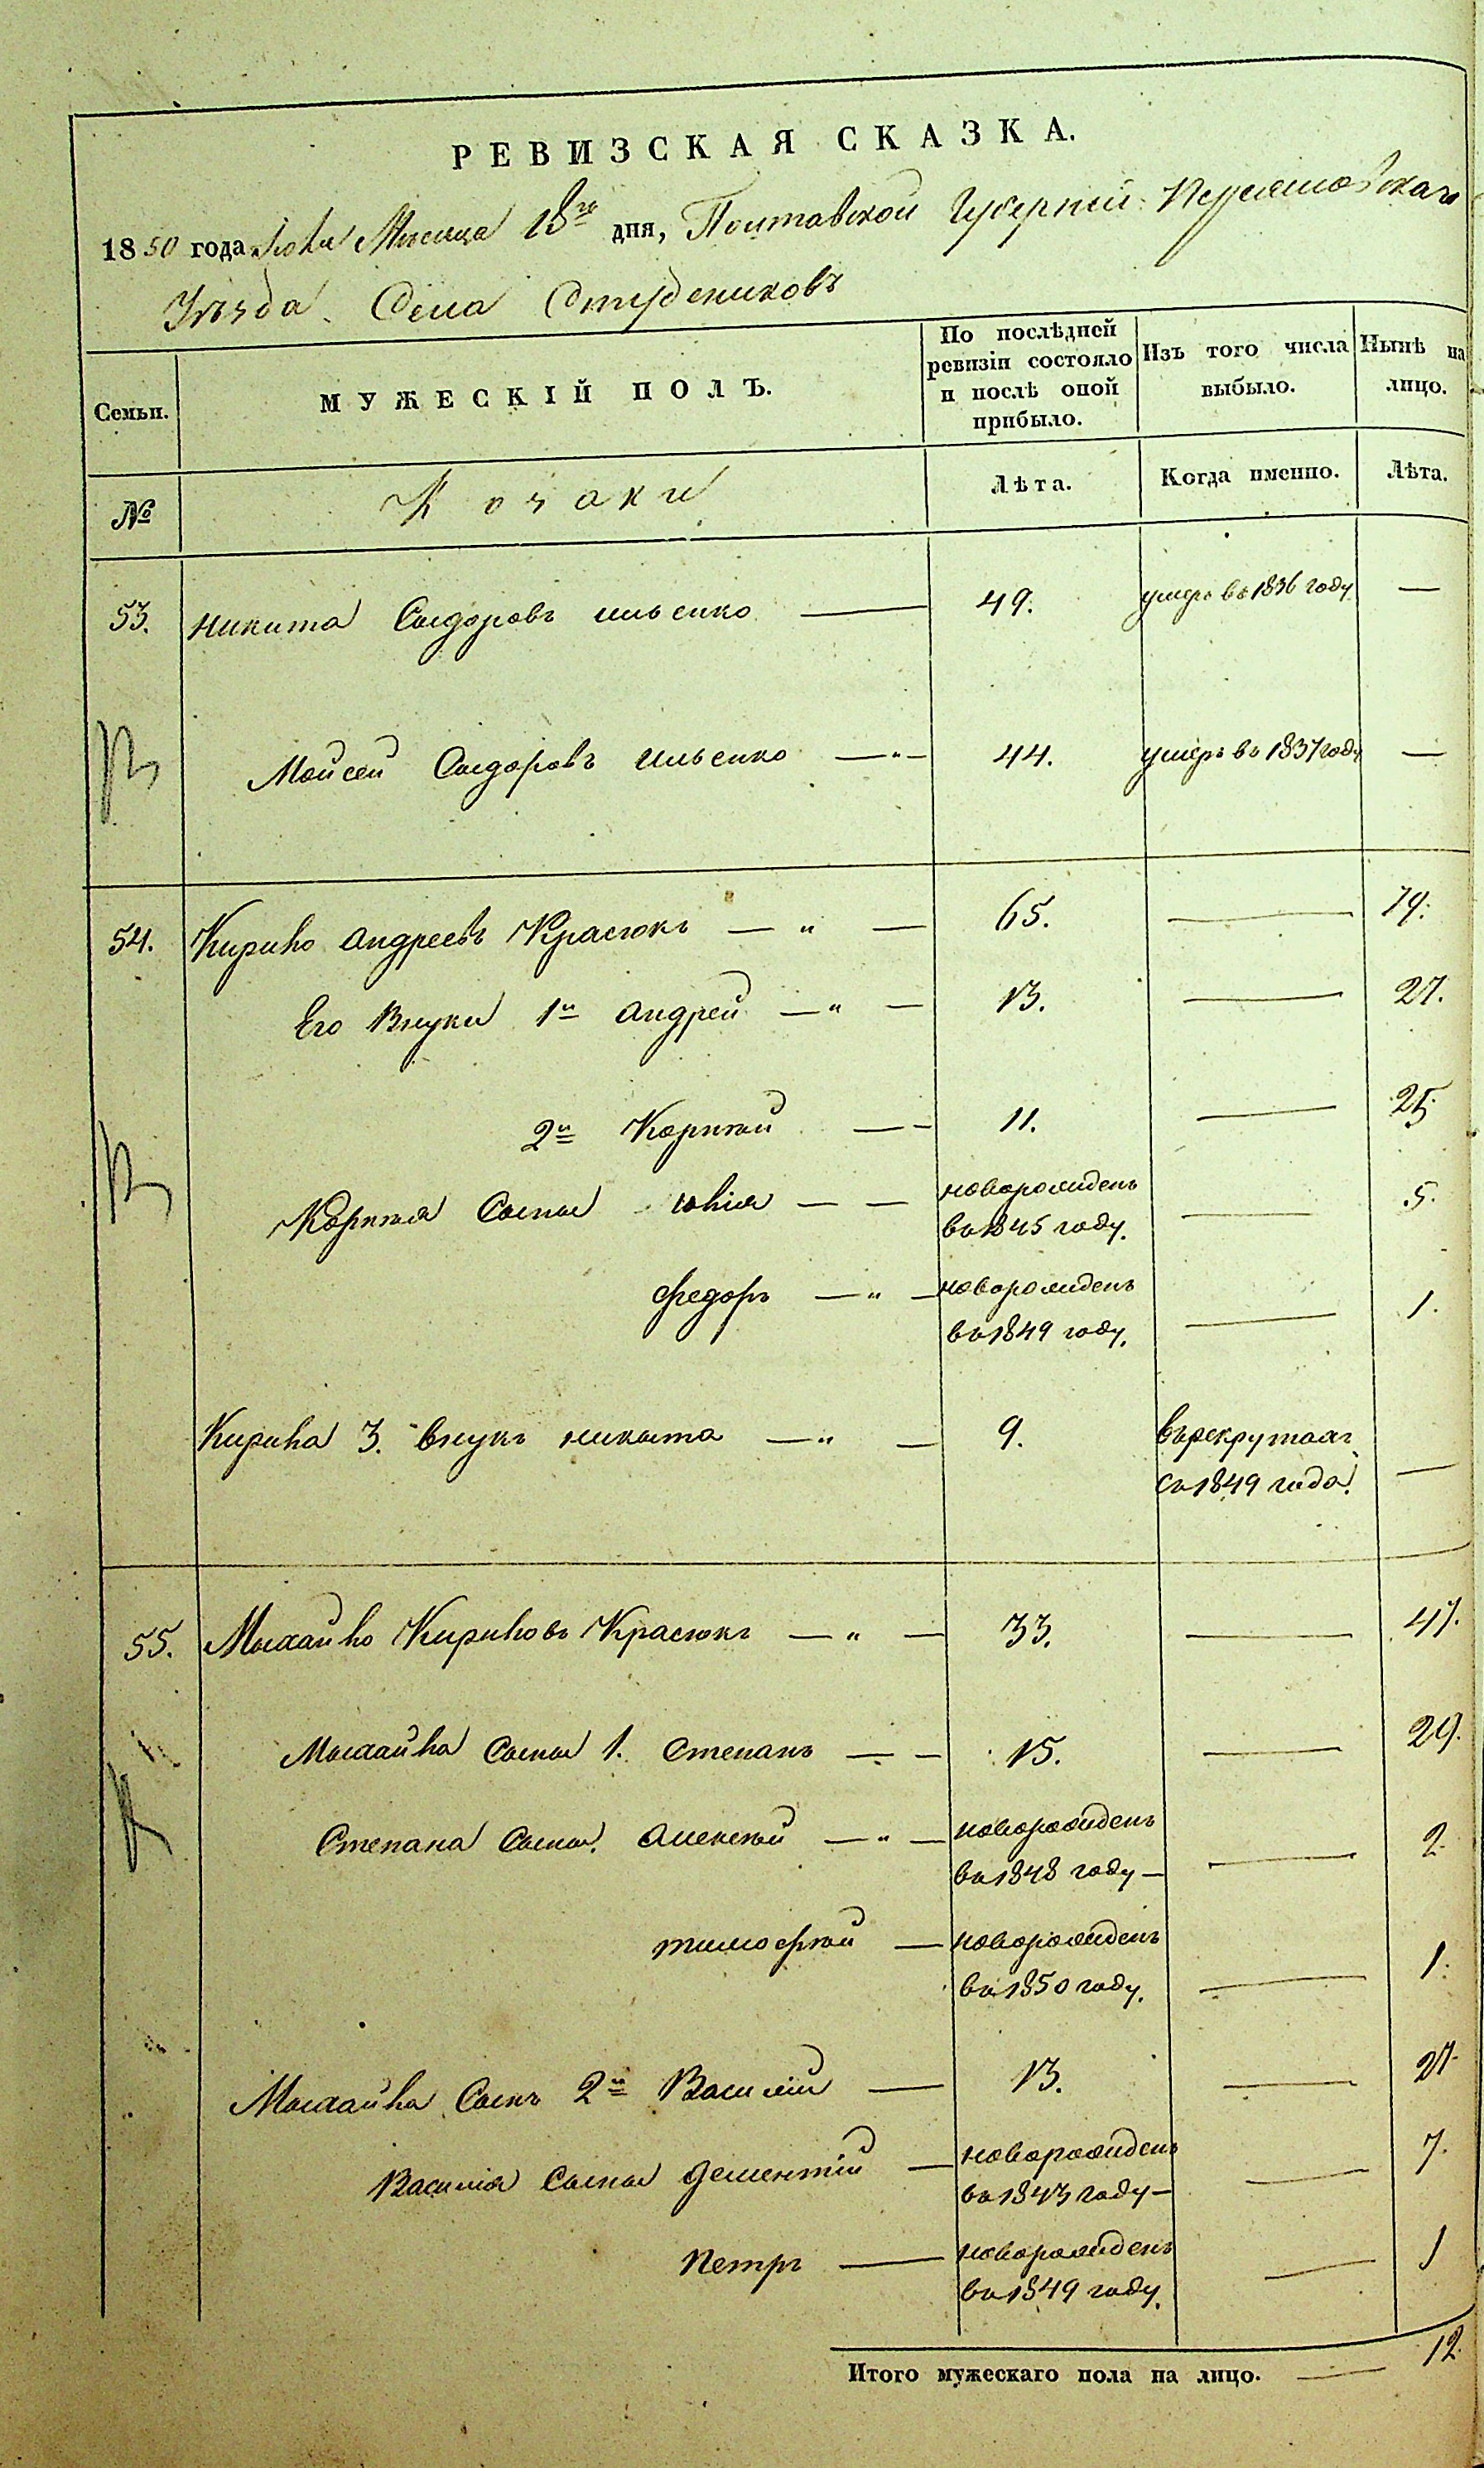 РЕВИЗСКАЯ СКАЗКА.
1850 года Мѣсяца 18го дня, Полтавской Губерніи Переяславскаго
Уѣзда Села Студениковъ
Семьи.
МУЖЕСКІЙ ПОЛЪ.
По послѣдней ревизіи состояло и послѣ оной прибыло.
Изъ того числа выбыло.
Нынѣ на лицо.
№
Козаки
Лѣта.
Когда именно.
Лѣта.
53. Никита Сидоровъ Ильенко — 49. умеръ въ 1836 году —
Мойсей Сидоровъ Ильенко — " — 44. умеръ въ 1837 году —
54. Кирило Андреевъ Красюкъ — " — 65. — 79.
Его Внуки 1й Андрей — " — 13. — 27.
2й Корнѣй — — 11. — 25.
Корнѣя Сыны Илія — — новорожденъ — 5.
въ 1845 году.
Федоръ — " — новорожденъ — 1.
въ 1849 году.
Кирила 3. внукъ Никита — " — 9. въ рекрутахъ —
съ 1849 года.
55. Михайло Кириловъ Красюкъ — " — 33. — 47.
Михайла Сыны 1. Степанъ — — 15. — 29.
Степана Сыны. Алексѣй — " — новорожденъ — 2
въ 1848 году —
Тимофѣй — новорожденъ — 1.
въ 1850 году.
Михайла Сынъ 2й Василій — 13. — 27.
Василія Сыны Дементій — новорожденъ — 7.
въ 1843 году —
Петръ — новорожденъ — 1
въ 1849 году.
Итого мужескаго пола на лицо. — 12.